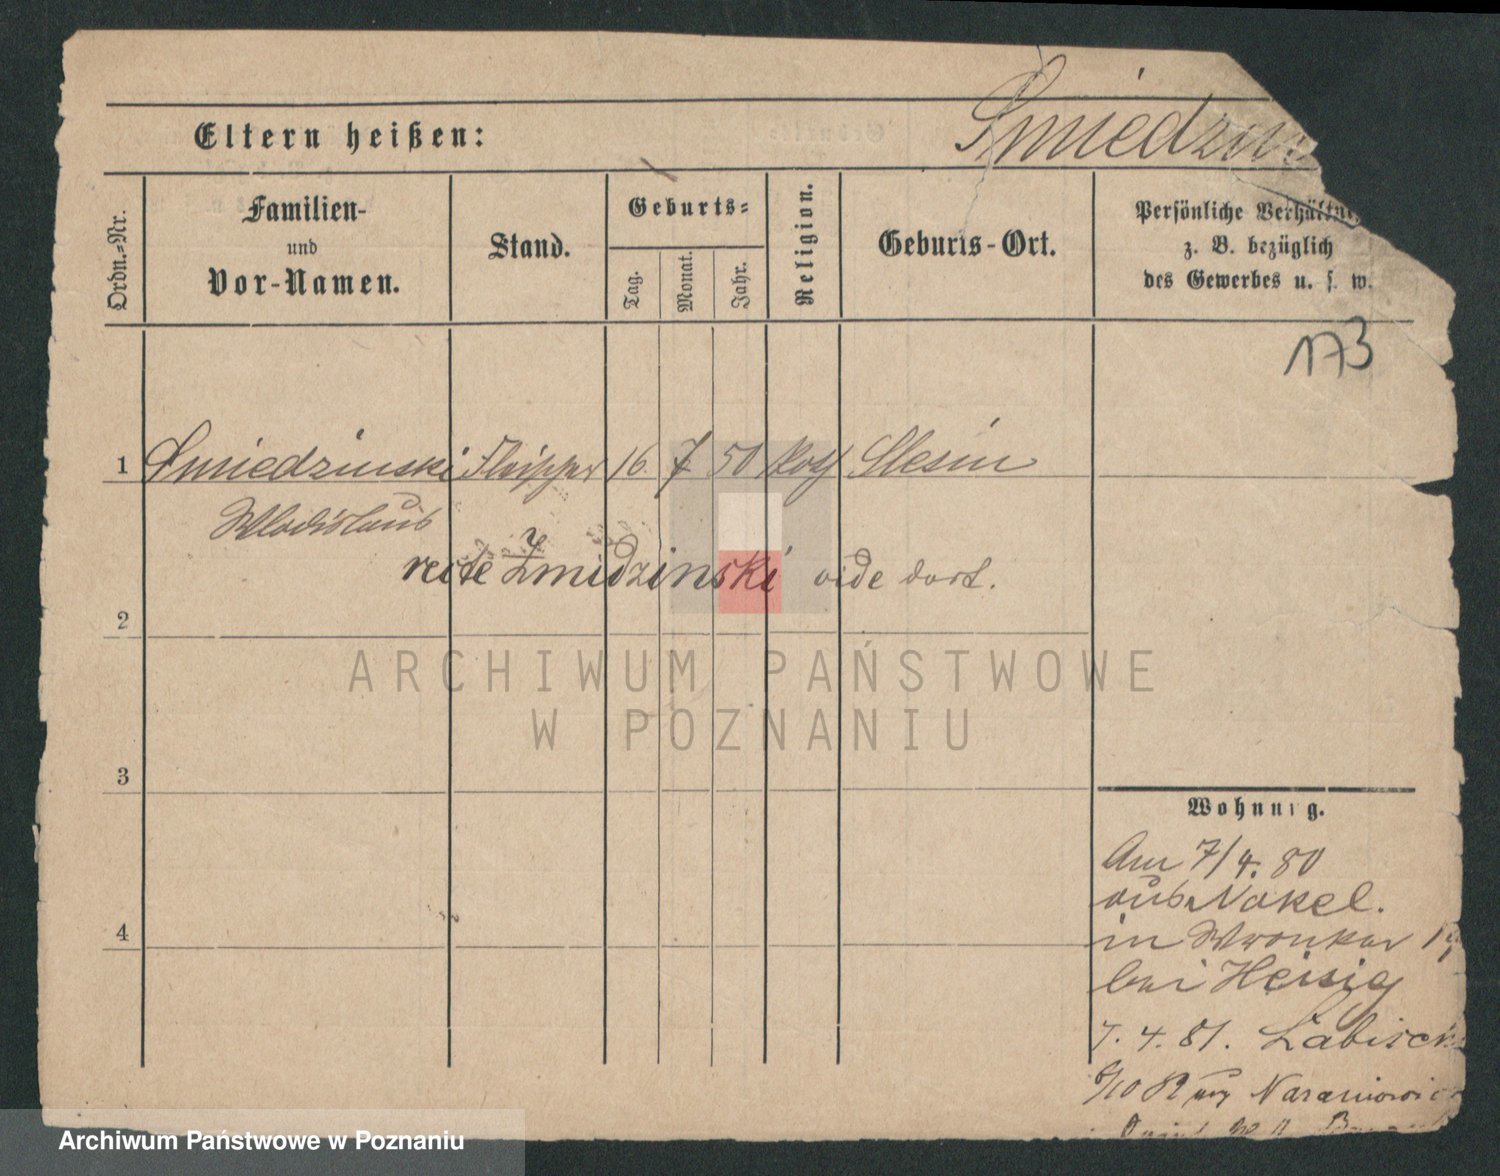 Smiedzins
Eltern heißen:
Ordn.-Nr.
Familien-
und
Vor-Namen.
Stand.
Geburts-
Tag.
Monat.
Jahr.
Religion.
Geburts-Ort.
Persönliche Verhältni
z. B. bezüglich
des Gewerbes u. s. w.
173
1 Smiedzinski Fleischer 16 7 50 kath Slesin
Wladislaus
recte Żmidzinski vide dort.
2
3
4
Wohnung.
Am 7/4. 80
aus Nakel.
in Wronker
bei Heisig
7. 4. 81. Labisch
ARCHIWUM PAŃSTWOWE
W POZNANIU
Archiwum Państwowe w Poznaniu